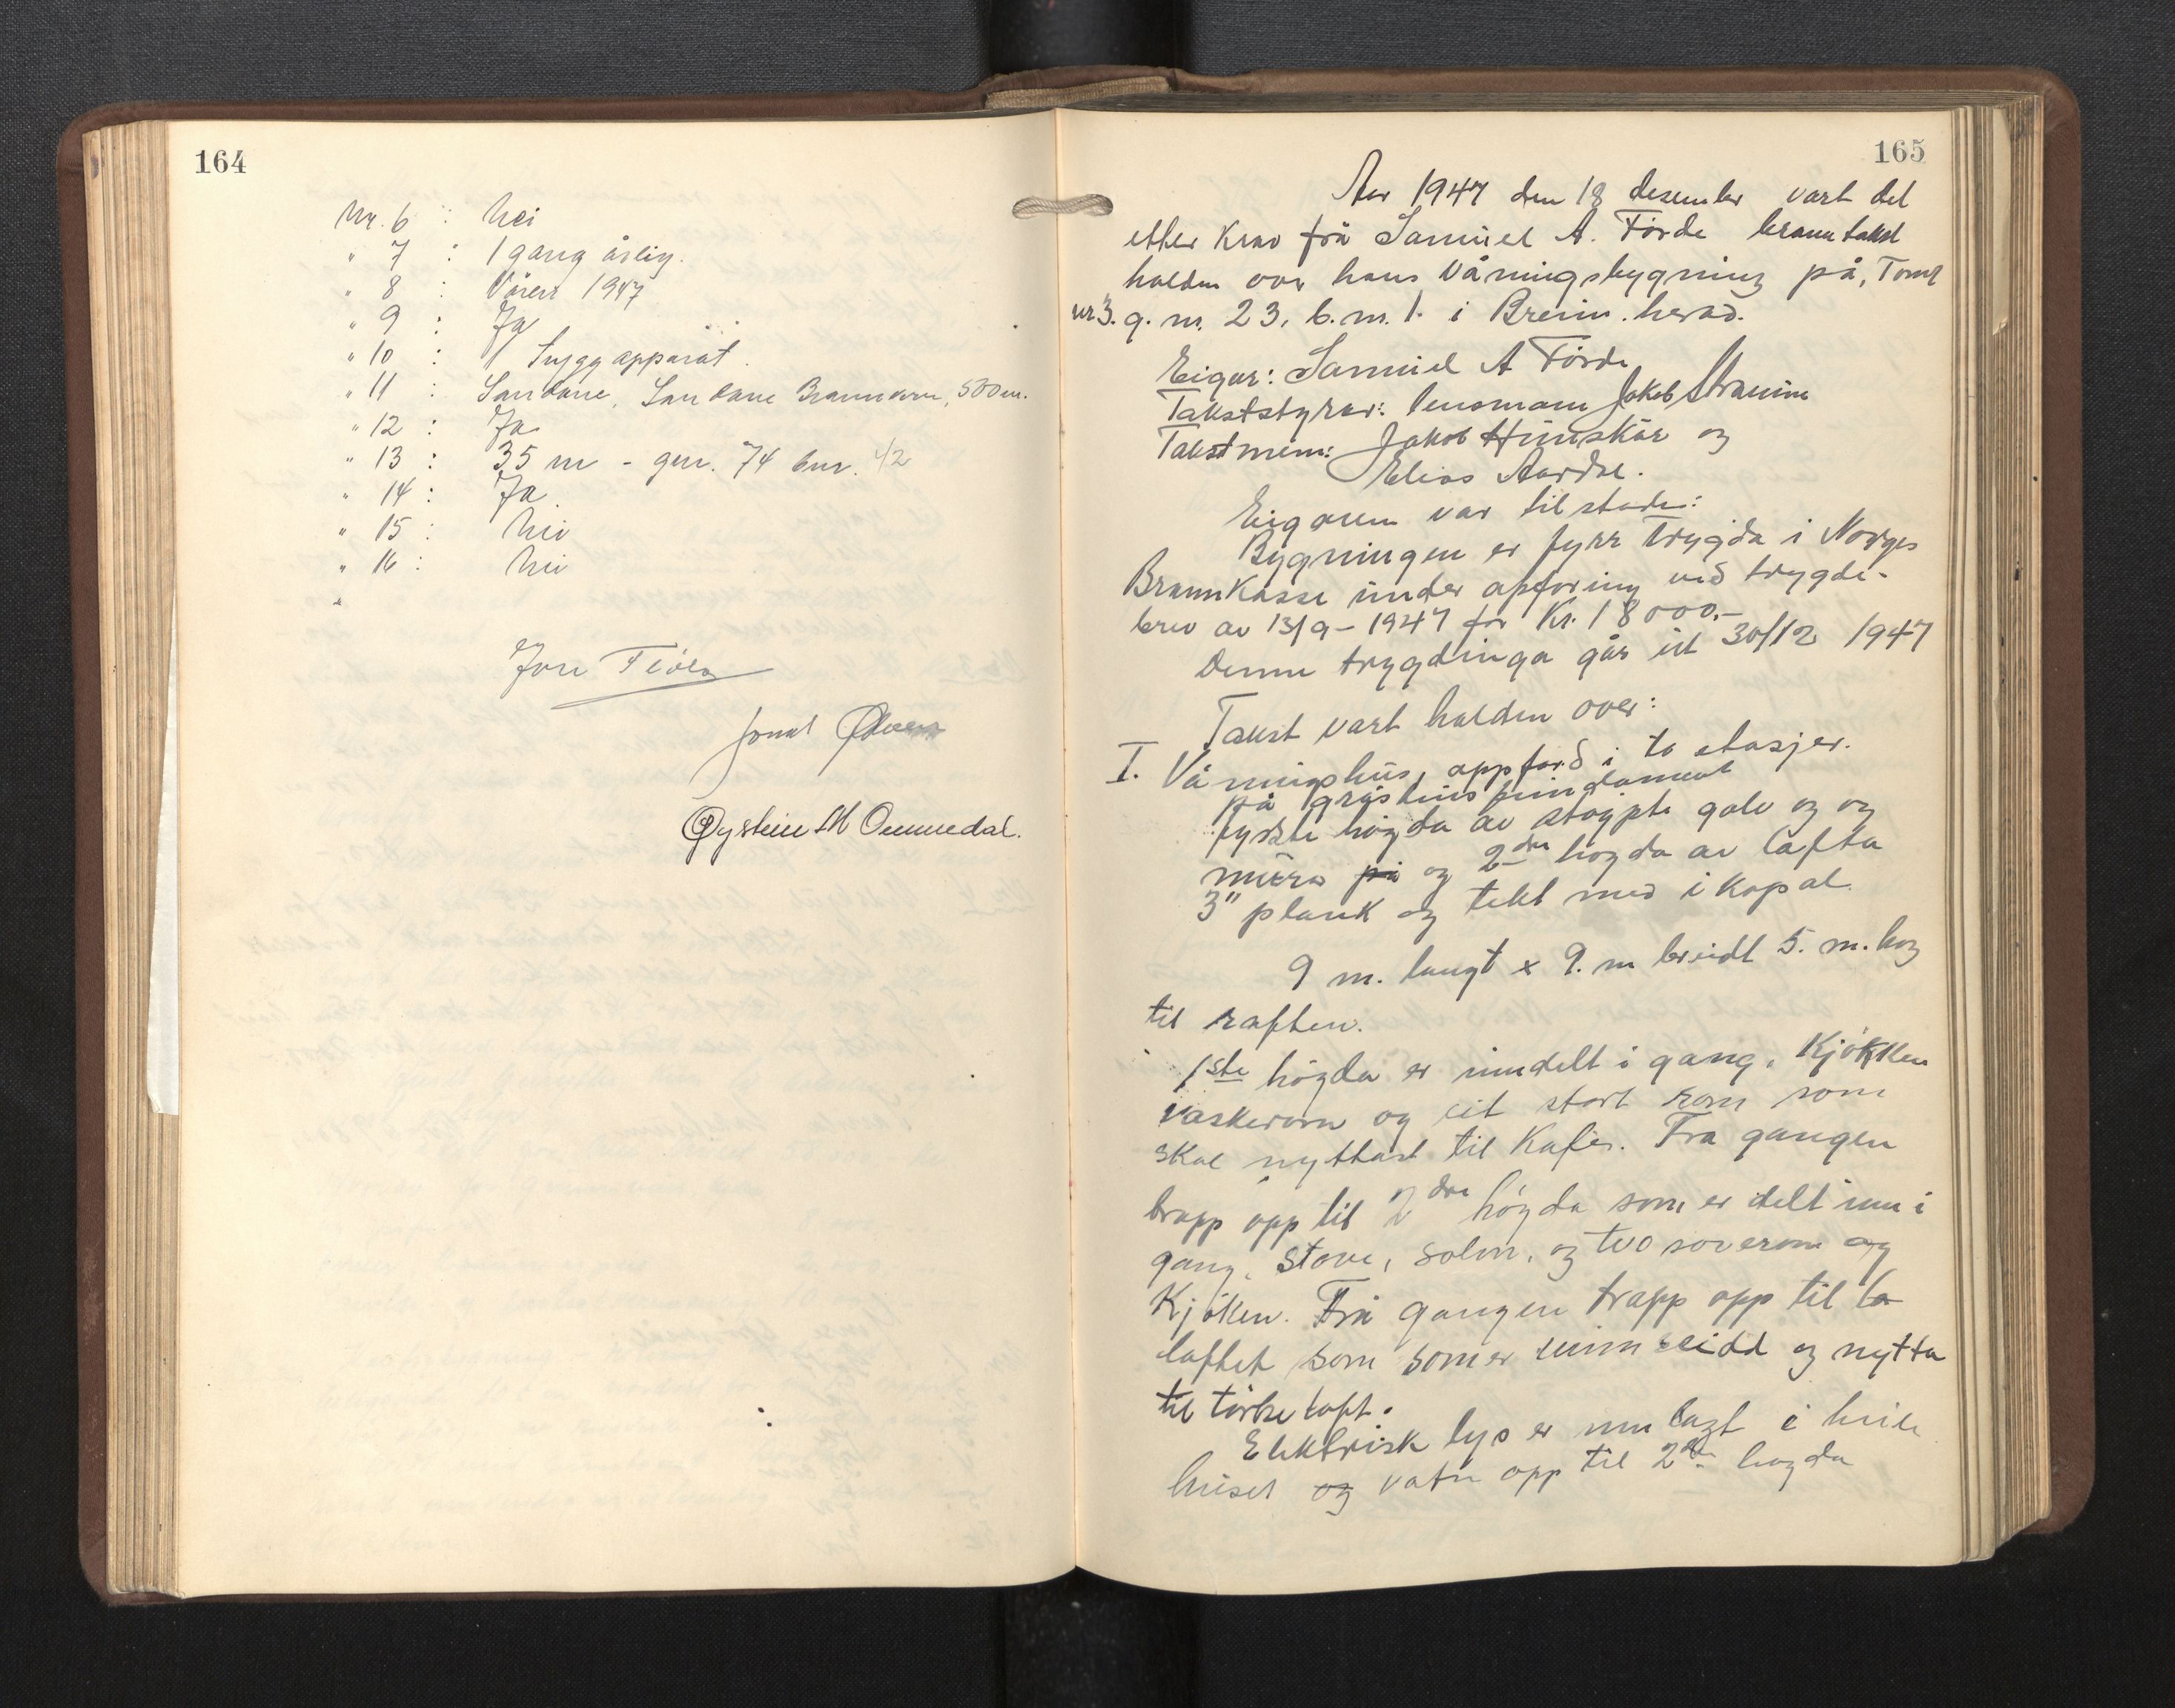 164
Nr. 6 : Nei
" 7 : 1 gang årleg.
" 8 : Våren 1947
" 9 : Ja
" 10 : 1 Snygg apparat.
" 11 : Sandane, Sandane Brannvern, 500 m.
" 12 : Ja
" 13 : 35 m - gnr. 74 bnr. 42
" 14 : Ja
" 15 : Nei
" 16 : Nei
"
Jon
Øystein M Ommedal.
165
Aar 1947 den 18 desember vart det
etter krav frå Samuel A. Förde branntakst
halden over hans våningsbygning på, Tomt
nr 3. g. nr. 23. b. nr. 1. i Breim. herad.
Eigar: Samuel A Förde
Takststyrar: lensmann Jakob
Takstmenn: Jakob Hunskår og
Elias Aardal.
Eigaren var tilstade:
Bygningen er fyrr trygda i Norges
Brannkasse under opföring ved trygde-
brev av 13/9 - 1947 for Kr. 18000.-
Denne trygdinga går ut 30/12 1947
Takst vart halden over:
I. Våningshus, oppförd i to etasjer.
på gråsteins fundament
fyrste högda av stöypte golv og og
murar på og 2dre högda av lafta
3" plank og tekt med ikopal.
9 m. langt x 9. m breidt 5. m. hög
til raften.
1ste högda er inndelt i gang, Kjökken
vaskerom og eit stort rom som
skal nyttast til Kafé. Fra gangen
trapp opp til 2dre högda som er delt inn i
gang, stove, salon, og tvo soverom og
Kjöken. Frå gangen trapp opp til lo
loftet som som er uinnreidd og nytta
til törkeloft.
Elektrisk lys er innlagt i heile
huset og vatn opp til 2dre högda